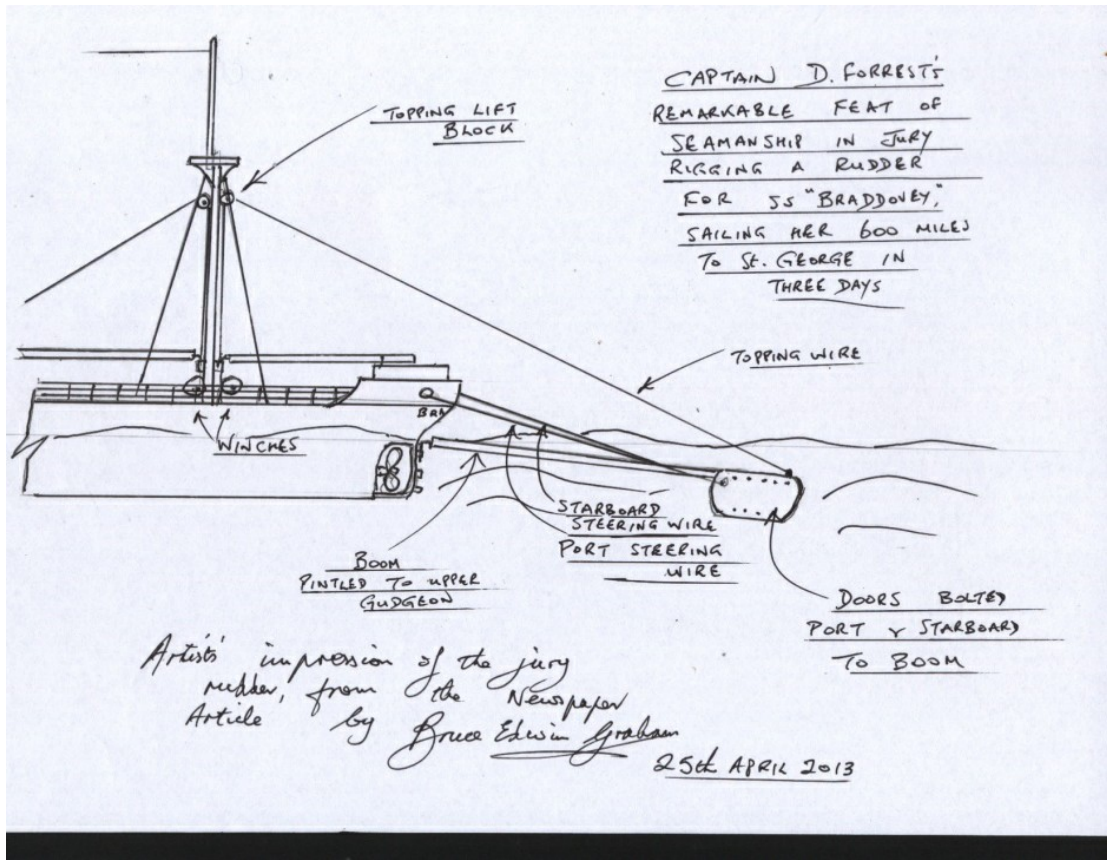 CAPTAIN D. FORREST'S
REMARKABLE FEAT OF
SEAMANSHIP IN JURY
RIGGING A RUDDER
FOR SS "BRADDOVEY,"
SAILING HER 600 MILES
TO ST. GEORGE IN
THREE DAYS
TOPPING LIFT
BLOCK
TOPPING WIRE
BRA
WINCHES
STARBOARD
STEERING WIRE
PORT STEERING
WIRE
BOOM
PINTLED TO UPPER
GUDGEON
DOORS BOLTED
PORT & STARBOARD
TO BOOM
Artist's impression of the jury
rudder, from the Newspaper
Article by Bruce Edwin Graham
25th APRIL 2013